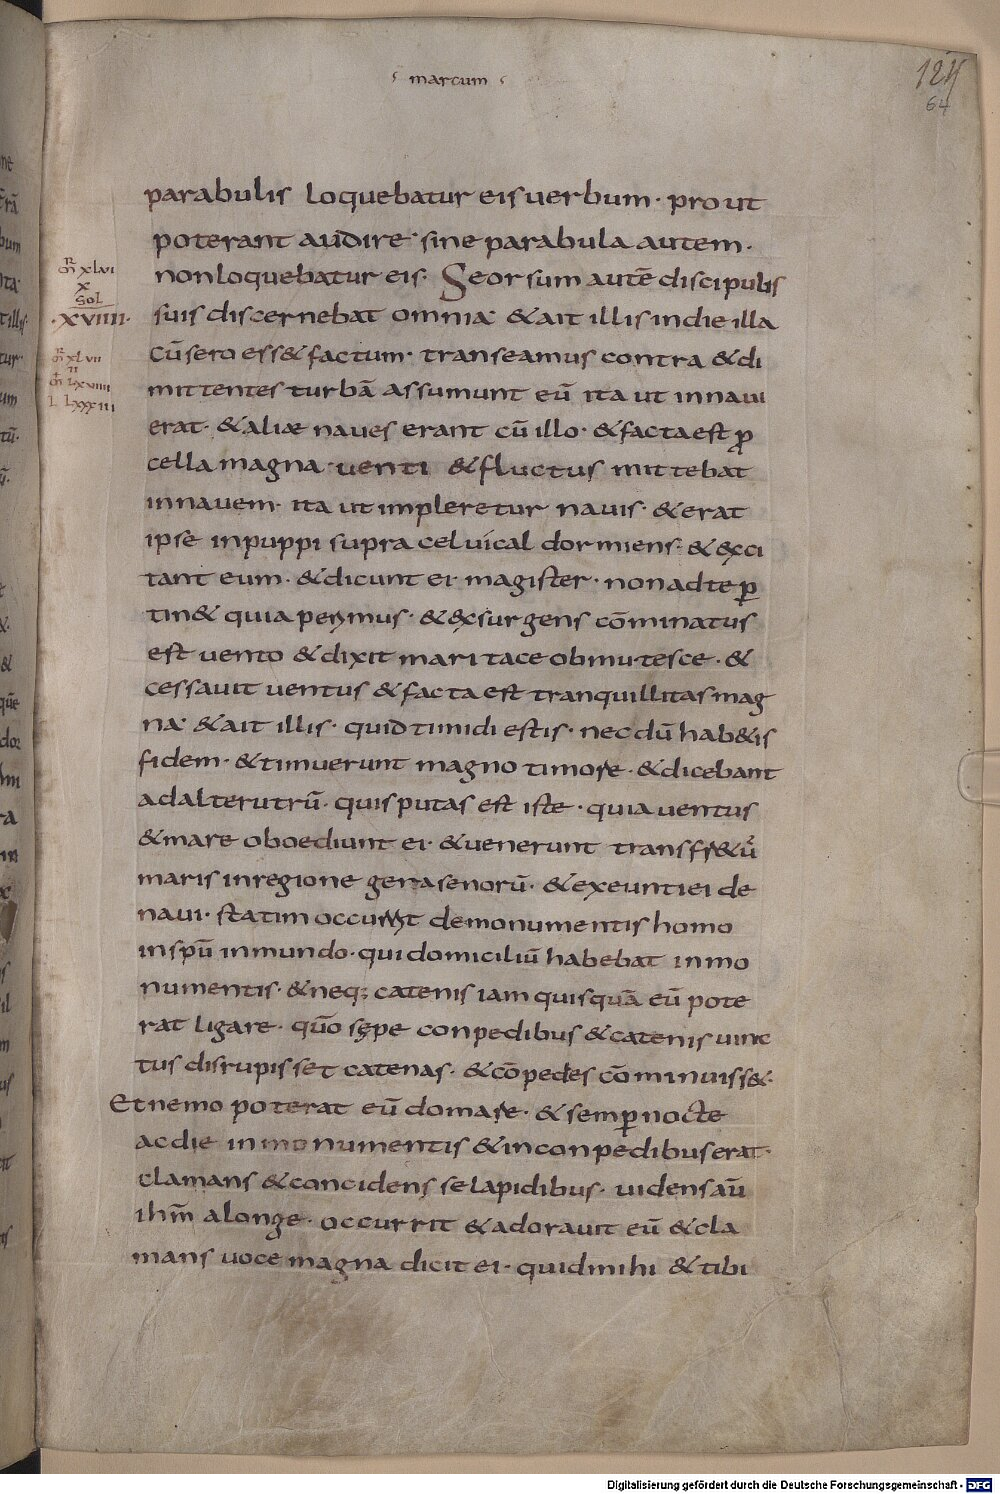 marcum
125
64
parabulis loquebatur eis verbum · prout
poterant audire · sine parabula autem ·
non loquebatur eis · Seorsum autē discipulis
suis discernebat omnia · & ait illis in die illa
cū sero ess& factum · transeamus contra & di
mittentes turbā assumunt eū ita ut in navi
erat · & aliæ naues erant cū illo · & facta est ꝓ
cella magna uenti & fluctus mittebat
in nauem · ita ut impleretur nauis · & erat
ipse in puppi supra celuical dormiens · & exci
tant eum · & dicunt ei · magister · non ad te ꝑ
tin& quia perimus · & exsurgens cōminatus
est uento & dixit mari tace obmutesce · &
cessauit uentus & facta est tranquillitas mag
na · & ait illis · quid timidi estis · nec dū hab&is
fidem · & timuerunt magno timore · & dicebant
ad alterutrū · quis putas est iste · quia uentus
& mare oboediunt ei · & uenerunt trans fr&ū
maris in regione gerasenorū · & exeunti ei de
naui · statim occurrit de monumentis homo
in spū inmundo · qui domiciliū habebat in mo
numentis · & neq; catenis iam quisquā eū pote
rat ligare · qūo sępe conpedibus & catenis uinc
tus disrupisset catenas · & cōpedes cōminuiss& ·
Et nemo poterat eū domare · & semꝑ nocte
ac die in monumentis & in conpedibus erat ·
clamans & concidens se lapidibus · uidens aū
ihm̄ a longe · occurrit & adorauit eū & cla
mans uoce magna dicit ei · quid mihi & tibi
xlvi
x
sol
· XVIIII ·
xlvii
ii
lxviiii
L lxxxiii
Digitalisierung gefördert durch die Deutsche Forschungsgemeinschaft - DFG